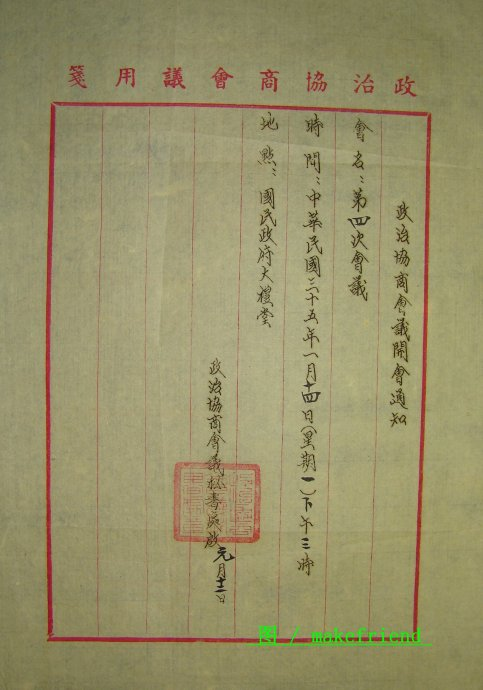 政治協商會議用箋
政治協商會議開會通知
會名：第四次會議
時間：中華民國三十五年一月十四日(星期一)下午三時
地點：國民政府大禮堂
政治協商會議秘書處啟 元月十二日
图 / makefriend